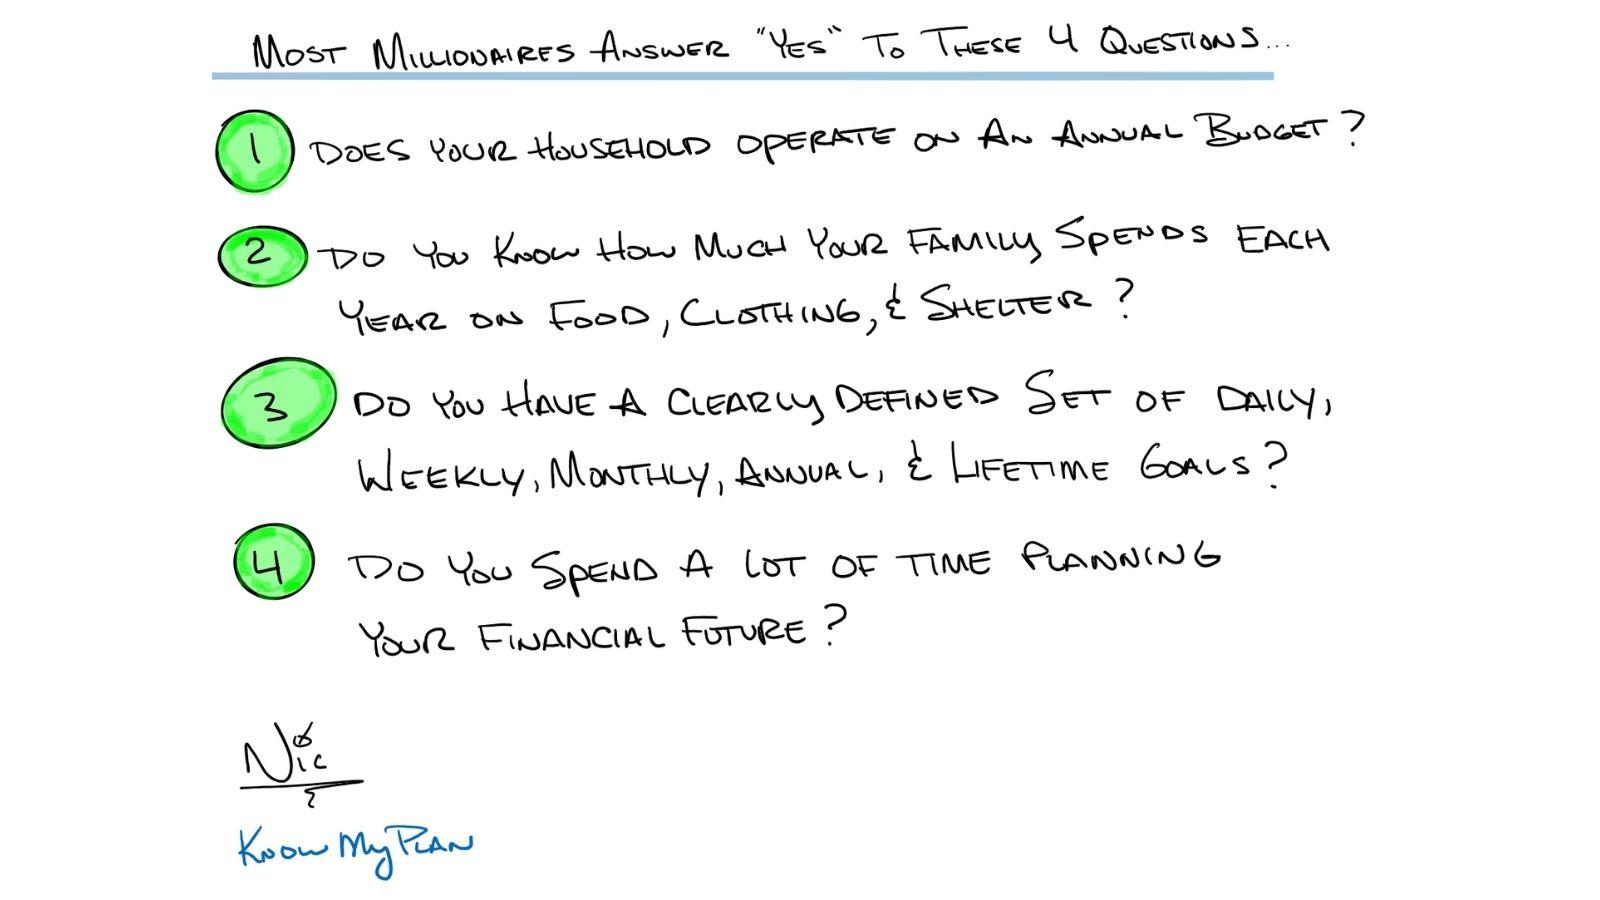 Most Millionaires Answer "Yes" To These 4 Questions...
1 Does Your Household Operate on An Annual Budget?
2 Do You Know How Much Your Family Spends Each
Year on Food, Clothing, & Shelter?
3 Do You Have A Clearly Defined Set of Daily,
Weekly, Monthly, Annual, & Lifetime Goals?
4 Do You Spend A Lot of Time Planning
Your Financial Future?
Nic
Know My Plan